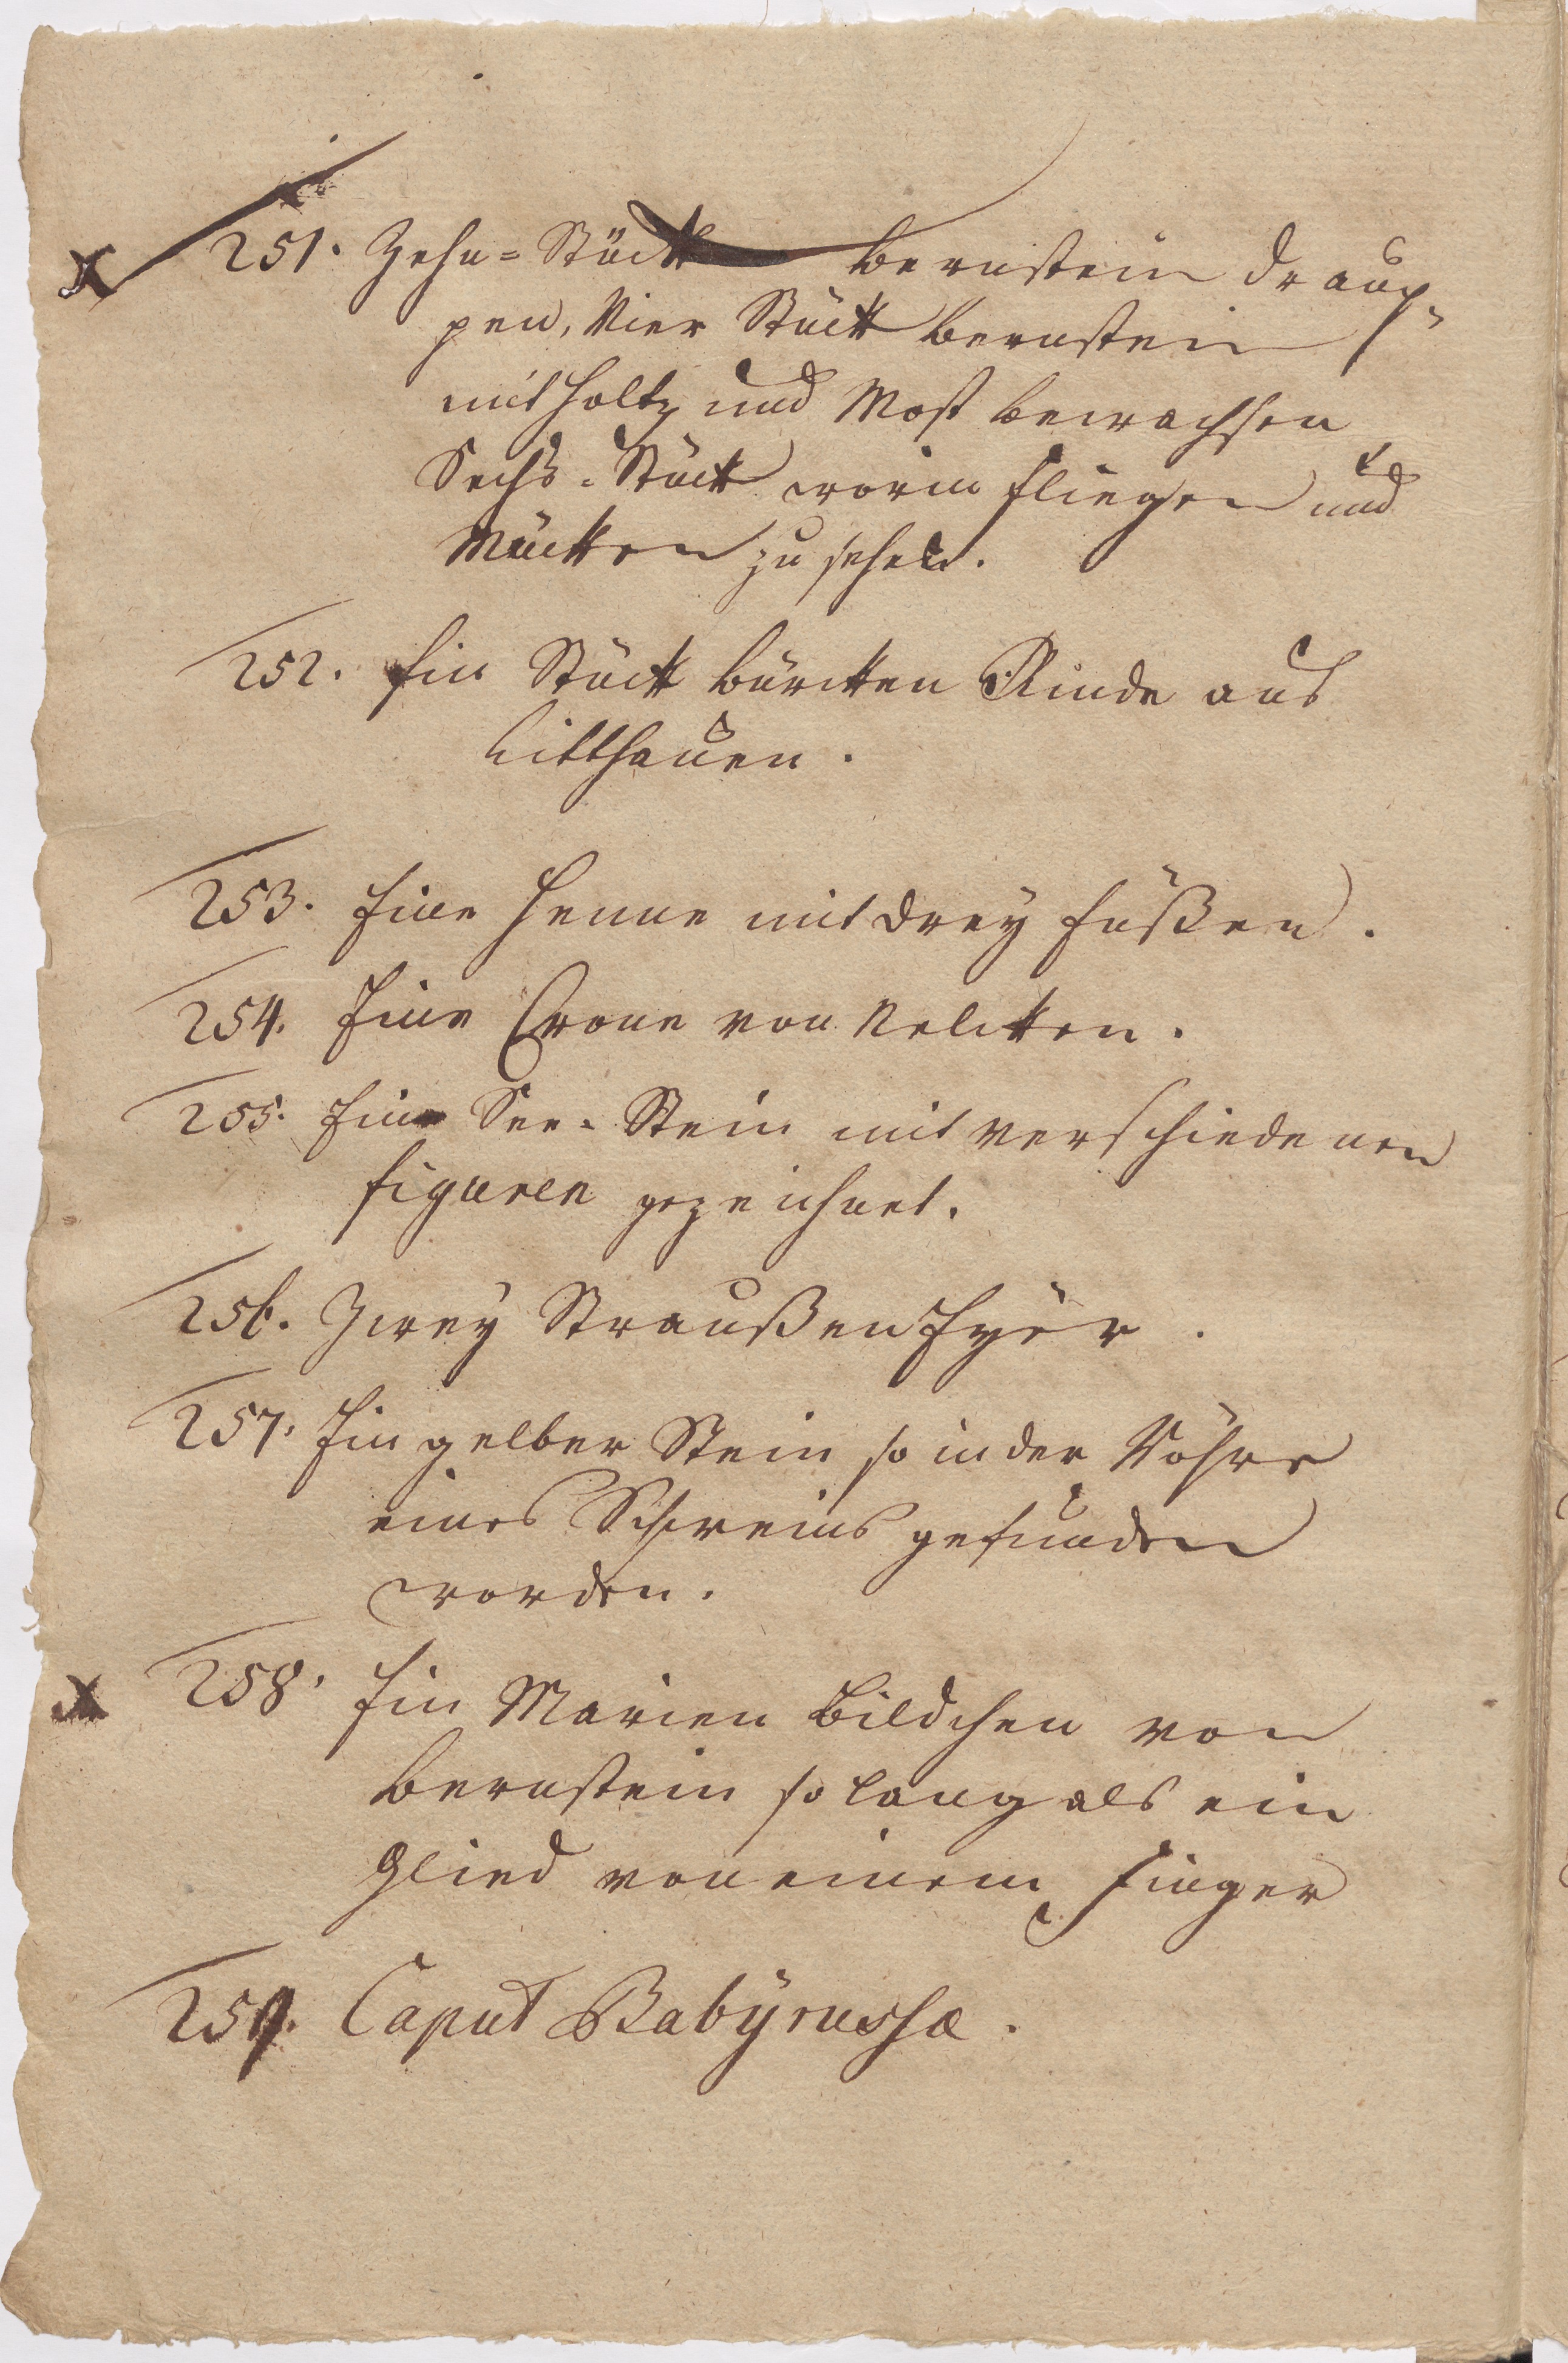 251. Zehn=Stück Bernstein Draup=
pen, Vier Stück Bernstein
mit Holtz und Most bewachsen
Sechs=Stück worin Fliegen und
Mücken zu sehen.
252. Ein Stück bürcken Rinde aus
Litthauen.
253. Eine Henne mit drey Füßen.
254. Eine Crone von Nelcken.
255. Ein See=Stein mit verschiedenen
figuren gezeichnet.
256. Zwey Straußen Eyer.
257. Ein gelber Stein so in der Röhre
eines Schweins gefunden
worden.
258. Ein Marien Bildchen von
Bernstein so lang als ein
Glied von einem Finger
259. Caput Babÿrussæ.